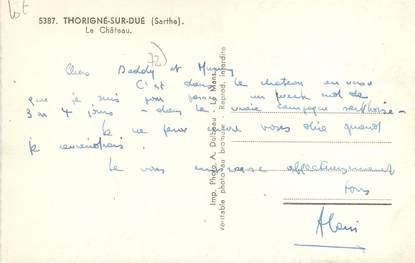 Lot
5387. THORIGNÉ-SUR-DUÉ (Sarthe).
Le Château.
72
Chers Daddy et
C'est dans le chateau en
que je suis pour passer un week end de
3 ou 4 jours – dans la vraie campagne sarthoise –
Je ne peux encore vous dire quand
je reviendrai.
Je vous embrasse affectueusement
tous
Alain
Imp. Photo A. Dolbeau - Le Mans.
Véritable photo au bromure - Reprod. interdite